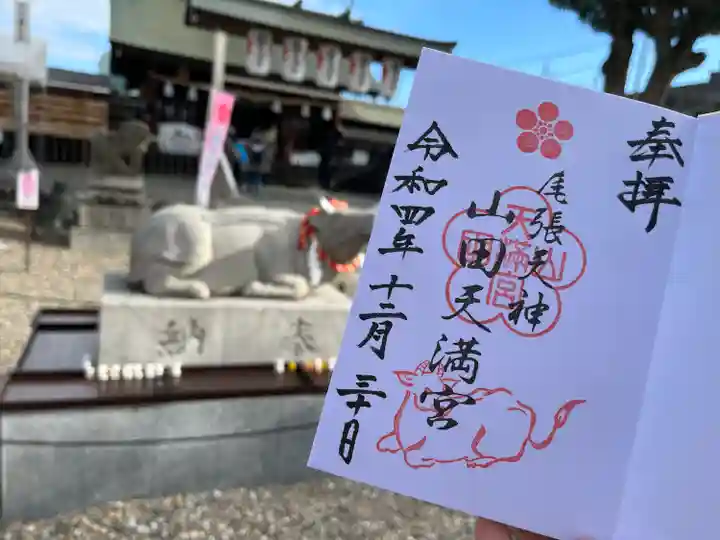 奉拝
尾張天神
山田天満宮
山田天満宮
令和四年十二月三十日
奉
納